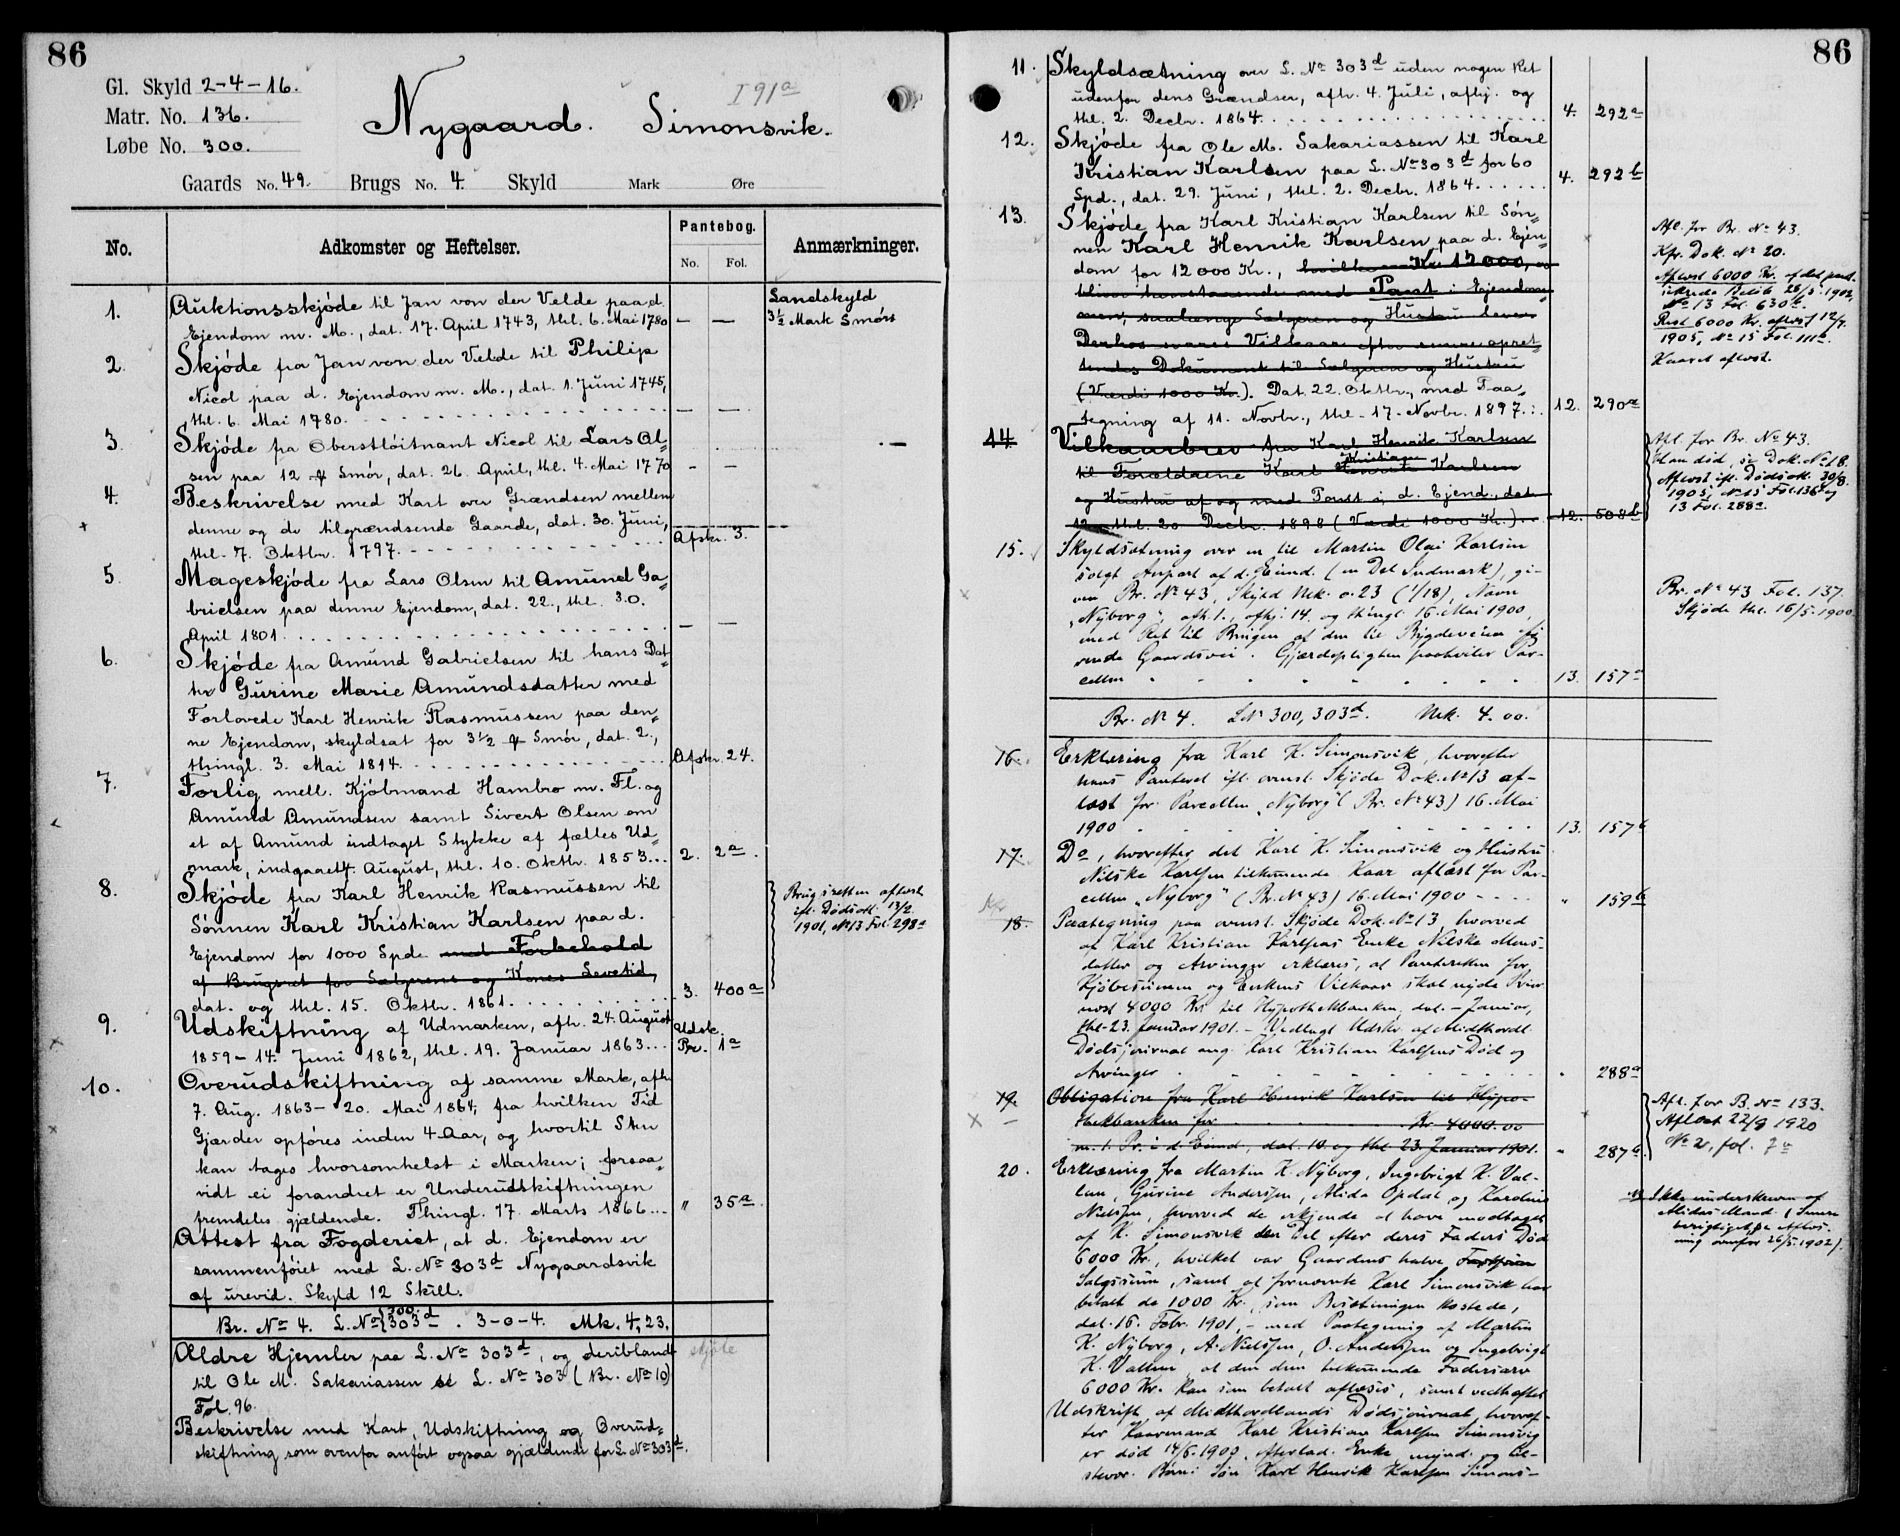 86
Gl. Skyld 2-4-16.
Matr. No. 136.
Løbe No. 300.
I 91a
Nygaard. Simonsvik.
Gaards No. 49. Brugs No. 4. Skyld Mark Øre
No. Adkomster og Heftelser. Pantebog. No. Fol. Anmærkninger.
1. Auktionsskjøde til Jan von der Velde paa d.
Ejendom m. M., dat. 17. April 1743, thl. 6. Mai 1780 — —
Landskyld
3½ Mark Smørs
2. Skjøde fra Jan von der Velde til Philip
Nicol paa d. Ejendom m. M., dat. 1. Juni 1745,
thl. 6. Mai 1780. — —
3. Skjøde fra Oberstløitnant Nicol til Lars Ol=
sen paa 12 Smør, dat. 26. April, thl. 4. Mai 1770 — —
4. Beskrivelse med Kart over Grændsen mellem
denne og de tilgrændsende Gaarde, dat. 30. Juni,
thl. 7. Oktbr. 1797. Afskr. 3.
5. Mageskjøde fra Lars Olsen til Amund Ga=
brielsen paa denne Ejendom, dat. 22., thl. 30.
April 1801. — —
6. Skjøde fra Amund Gabrielsen til hans Dat=
ter Gurine Marie Amundsdatter med
Forlovede Karl Henrik Rasmussen paa den=
ne Ejendom, skyldsat for 3½ Smør, dat. 2.,
thingl. 3. Mai 1814. Afskr. 24.
7. Forlig mell. Kjøbmand Hambro m. Fl. og
Amund Amundsen samt Sivert Olsen om
et af Amund indtaget Stykke af fælles Ud=
mark, indgaaet 4. August, thl. 10. Oktbr. 1853... 2. 2a.
8. Skjøde fra Karl Henrik Rasmussen til
Sønnen Karl Kristian Karlsen paa d.
Ejendom for 1000 Spd. med Forbehold
af Brugsret for Sælgerens og Kones Levetid,
dat. og thl. 15. Oktbr. 1861. 3. 400a
Brugsretten aflyst
ifl. Dødsatt. 13/2.
1901, No 13 Fol. 298a
9. Udskiftning af Udmarken, afh. 24. August
1859 - 14. Juni 1862, thl. 19. Januar 1863... Udsk. Pr. 1a
10. Overudskiftning af samme Mark, afh.
7. Aug. 1863 - 20. Mai 1864, fra hvilken Tid
Gjærder opføres inden 4 Aar, og hvortil Sten
kan tages hvorsomhelst i Marken; forsaa=
vidt ei forandret er Underudskiftningen
fremdeles gjældende. Thingl. 17. Marts 1866... " 35a.
Attest fra Fogderiet, at d. Ejendom er
sammenføiet med L. No 303d Nygaardsvik
af urevid. Skyld 12 Skill.
Br. No 4. L. No {300. 303d. 3-0-4. Mk. 4,23.
Ældre Hjemler paa L. No 303d, og deriblandt skjøte
til Ole M. Sakariassen se L. No 303 (Br. No 10)
Fol. 96.
Beskrivelse med Kart, Udskiftning og Overud=
skiftning som ovenfor anført ogsaa gjældende for L. No 303d.
86
11. Skyldsætning over L. No 303d uden nogen Ret
udenfor dens Grændser, afh. 4. Juli, afhj. og
thl. 2. Decbr. 1864. 4. 292a
12. Skjøde fra Ole M. Sakariassen til Karl
Kristian Karlsen paa L. No 303d for 60
Spd., dat. 29. Juni, thl. 2. Decbr. 1864. 4. 292b
13. Skjøde fra Karl Kristian Karlsen til Søn=
nen Karl Henrik Karlsen paa d. Ejen=
dom for 12 000 Kr., hvilke Kr. 12000,
bliver henstaaende med Pant i Ejendom=
men, saalænge Sælgeren og Hustru lever
Derhos svares Vilkaar efter senere opret=
tendes Dokument til Sælgeren og Hustru
(Værdi 1000 Kr.). Dat. 22. Oktbr., med Paa=
tegning af 11. Novbr., thl. 17. Novbr. 1897. 12. 290a
Afl. for Br. No 43.
Kfr. Dok. No 20.
Aflyst 6000 Kr. af det pant-
sikrede Beløb 26/5 1902,
No 13 Fol. 630b.
Rest 6000 Kr. aflyst 12/7.
1905, No 15 Fol. 111a.
Kaaret aflyst.
14. Vilkaarbrev fra Karl Henrik Karlsen
til Forældrene Karl Kristian Karlsen
og Hustru af og med Pant i d. Ejend., dat.
12. thl. 20. Decbr. 1898 (Værdi 1000 Kr.). 12. 508b
Afl. for Br. No 43.
Han død, se Dok. No 18.
Aflyst ifl. Dødsatt. 30/8.
1905, No 15 Fol. 136a og
13 Fol. 288a.
15. Skyldsætning over en til Martin Olai Karlsen
solgt Anpart af d. Eiend. (en Del Indmark), gi-
ven Br. No 43, Skyld Mk. 0.23 (1/18), Navn
„Nyborg", afh. 1., afhj. 14. og thingl. 16. Mai 1900,
med Ret til Brugen af den til Bygdeveien fø-
rende Gaardsvei. Gjærdepligten paahviler Par-
cellen 13. 157a
Br. No 43 Fol. 137.
Skjøde thl. 16/5. 1900
Br. No 4. L No 300, 303d. Mk. 4.00.
16. Erklæring fra Karl K. Simonsvik, hvorefter
hans Panteret ifl. ovenst. Skjøde Dok. No 13 af-
løst for Parcellen „Nyborg" (Br. No 43) 16. Mai
1900 13. 157b
17. Do, hvorefter det Karl K. Simonsvik og Hustru
Nilske Karlsen tilkommende Kaar afløst for Par-
cellen „Nyborg" (Br. No 43) 16. Mai 1900 " 159b
18. Paategning paa ovenst. Skjøde Dok. No 13 hvorved
af Karl Kristian Karlsens Enke Nilske Mons-
datter og Arvinger erklæres, at Panteretten for
Kjøbesummen og Enkens Vilkaar skal vige Prior
mod 4000 Kr. til Hypothekbanken, dat. - Januar,
thl. 23. Januar 1901. - Vedlagt Udskr. af Midthordl.
Dødsjournal ang. Karl Kristian Karlsens Død og
Arvinger " 288a
19. Obligation fra Karl Henrik Karlsen til Hypo-
thekbanken for Kr. 4000.00
m. 1. Pr. i d. Eiend., dat. 10. og thl. 23. Januar 1901. " 287b.
Afl. for B. No 133.
Aflyst 22/9 1920
No 21, fol. 7a
20. Erklæring fra Martin K. Nyborg, Ingebrigt K. Val-
len, Gurine Andersen, Alida Opdal og Karoline
Nielsen, hvorved de erkjende at have modtaget
af K. Simonsvik den Del efter deres Faders Død
6000 Kr., hvilket var Gaardens halve
Salgssum, samt at fornævnte Karl Simonsvik har
betalt de 1000 Kr., som Besætningen kostede,
dat. 16. Febr. 1901, - med Paategning af Martin
K. Nyborg, A. Nielsen, O. Andersen og Ingebrigt
K. Vallen at den dem tilkommende Fædrearv
6000 Kr. kan som betalt aflæses, samt vedheftet
Udskrift af Midthordlands Dødsjournal, hvoref-
ter Kaarmand Karl Kristian Karlsen Simonsvig
er død 14/6. 1900, efterlad. Enke, mynd. og til-
stedev. Børn: Søn Karl Henrik Karlsen Simons-
Ikke underskreven af
Alidas Mand (Senere
berigtiget, se Aflys-
ning ovenfor 26/5. 1902).